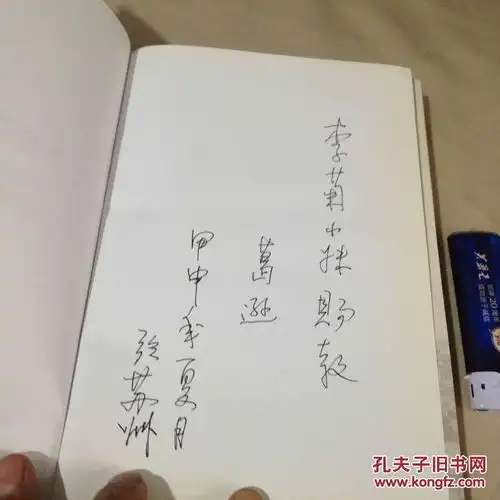 李菊小妹赐教
葛逊
甲申年夏月
於苏州
20周年
孔夫子旧书网
www.kongfz.com